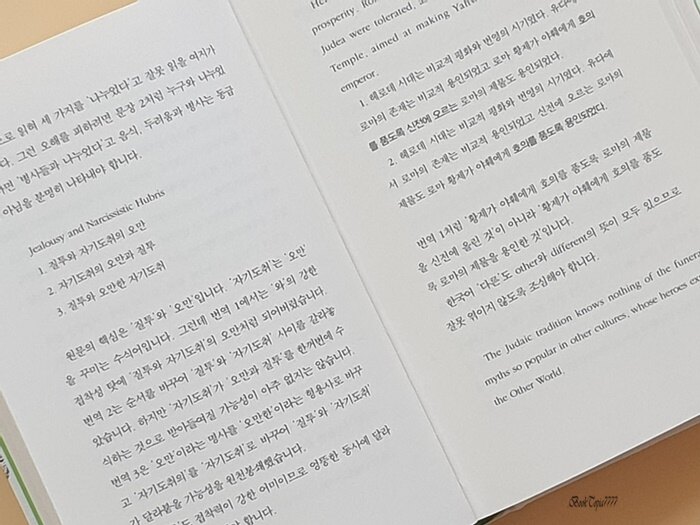 으로 읽혀 세 가지를 '나누었다'고 잘못 읽을 여지가
다. 그런 오해를 피하려면 문장 2처럼 누구와 나누었
라면 '병사들과 나누었다'고 음식, 두려움과 병사는 동급
아님을 분명히 나타내야 합니다.
Jealousy and Narcissistic Hubris
1. 질투와 자기도취의 오만
2. 자기도취의 오만과 질투
3. 질투와 오만한 자기도취
원문의 핵심은 '질투'와 '오만'입니다. '자기도취'는 '오만'
을 꾸미는 수식어입니다. 그런데 번역 1에서는 '와'의 강한
접착성 탓에 '질투와 자기도취'의 오만처럼 되어버렸습니다.
번역 2는 순서를 바꾸어 '질투'와 '자기도취' 사이를 갈라놓
았습니다. 하지만 '자기도취'가 '오만과 질투'를 한꺼번에 수
식하는 것으로 받아들여질 가능성이 아주 없지는 않습니다.
번역 3은 '오만'이라는 명사를 '오만한'이라는 형용사로 바꾸
고 '자기도취의'를 '자기도취'로 바꾸어 '질투'와 '자기도취'
가 달라붙을 가능성을 원천봉쇄했습니다.
도 접착력이 강한 어미이므로 엉뚱한 동사에 달라
합니다.
prosperity.
Judea were tolerated,
Temple, aimed at making Yahweh
emperor.
1. 헤로데 시대는 비교적 평화와 번영의 시기였다. 유다에
로마의 존재는 비교적 용인되었고 로마 황제가 야훼에게 호의
를 품도록 신전에 오르는 로마의 제품도 용인되었다.
2. 헤로데 시대는 비교적 평화와 번영의 시기였다. 유다에
서 로마의 존재는 비교적 용인되었고 신전에 오르는 로마의
제품도 로마 황제가 야훼에게 호의를 품도록 용인되었다.
번역 1처럼 '황제가 야훼에게 호의를 품도록 로마의 제품
을 신전에 올린 것'이 아니라 '황제가 야훼에게 호의를 품도
록 로마의 제품을 용인한 것'입니다.
한국어 '다른'도 other와 different의 뜻이 모두 있으므로
잘못 엮이지 않도록 조심해야 합니다.
The Judaic tradition knows nothing of the funera
myths so popular in other cultures, whose heroes ex
the Other World.
BookToya7777